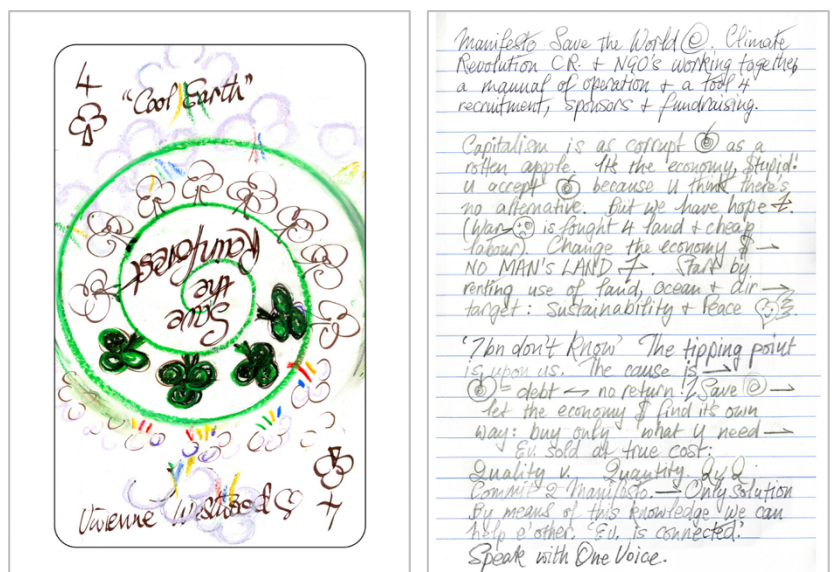 4
"Cool Earth"
Save
the
Rainforest
Vivienne Westwood
4
Manifesto Save the World @. Climate
Revolution C.R. + NGO's working together,
a manual of operation + a tool 4
recruitment, sponsors + fundraising.
Capitalism is as corrupt as a
rotten apple. It's the economy, stupid!
u accept because u think there's
no alternative. But we have hope
(War is fought 4 land + cheap
labour). Change the economy $ →
NO MAN'S LAND . Start by
renting use of land, ocean + air →
target: Sustainability + Peace
'7bn don't know' The tipping point
is upon us. The cause is →
debt no return! Save @ →
let the economy $ find its own
way: buy only what u need →
Ev. sold at true cost:
Quality v. Quantity. Q v Q.
Commit 2 Manifesto. → Only solution
By means of this knowledge we can
help e'other. 'Ev. is connected.'
Speak with One Voice.